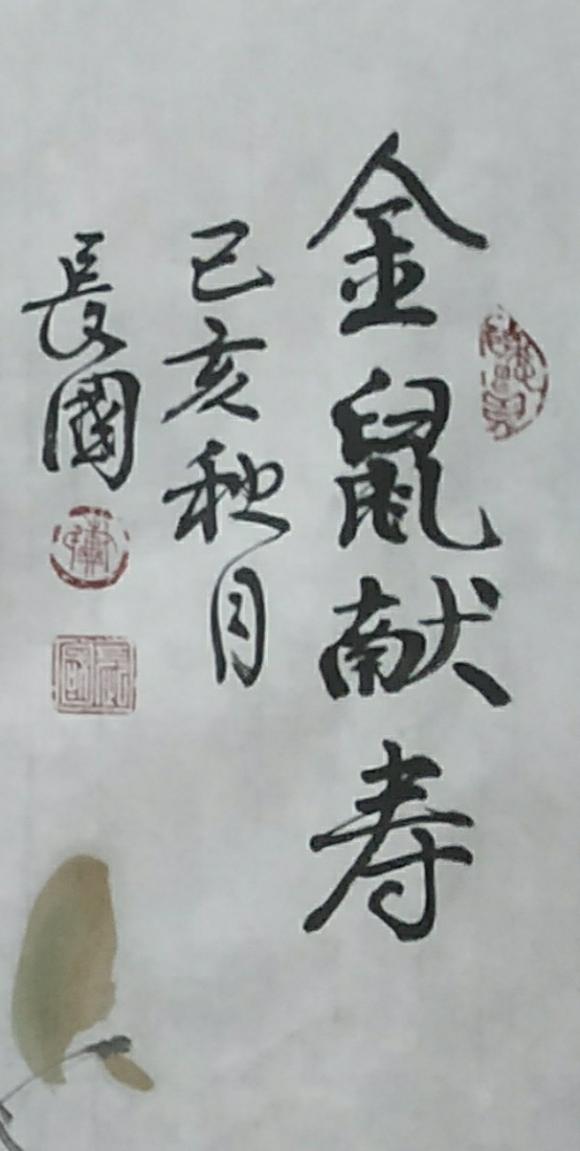 金鼠献寿
己亥秋月
長國